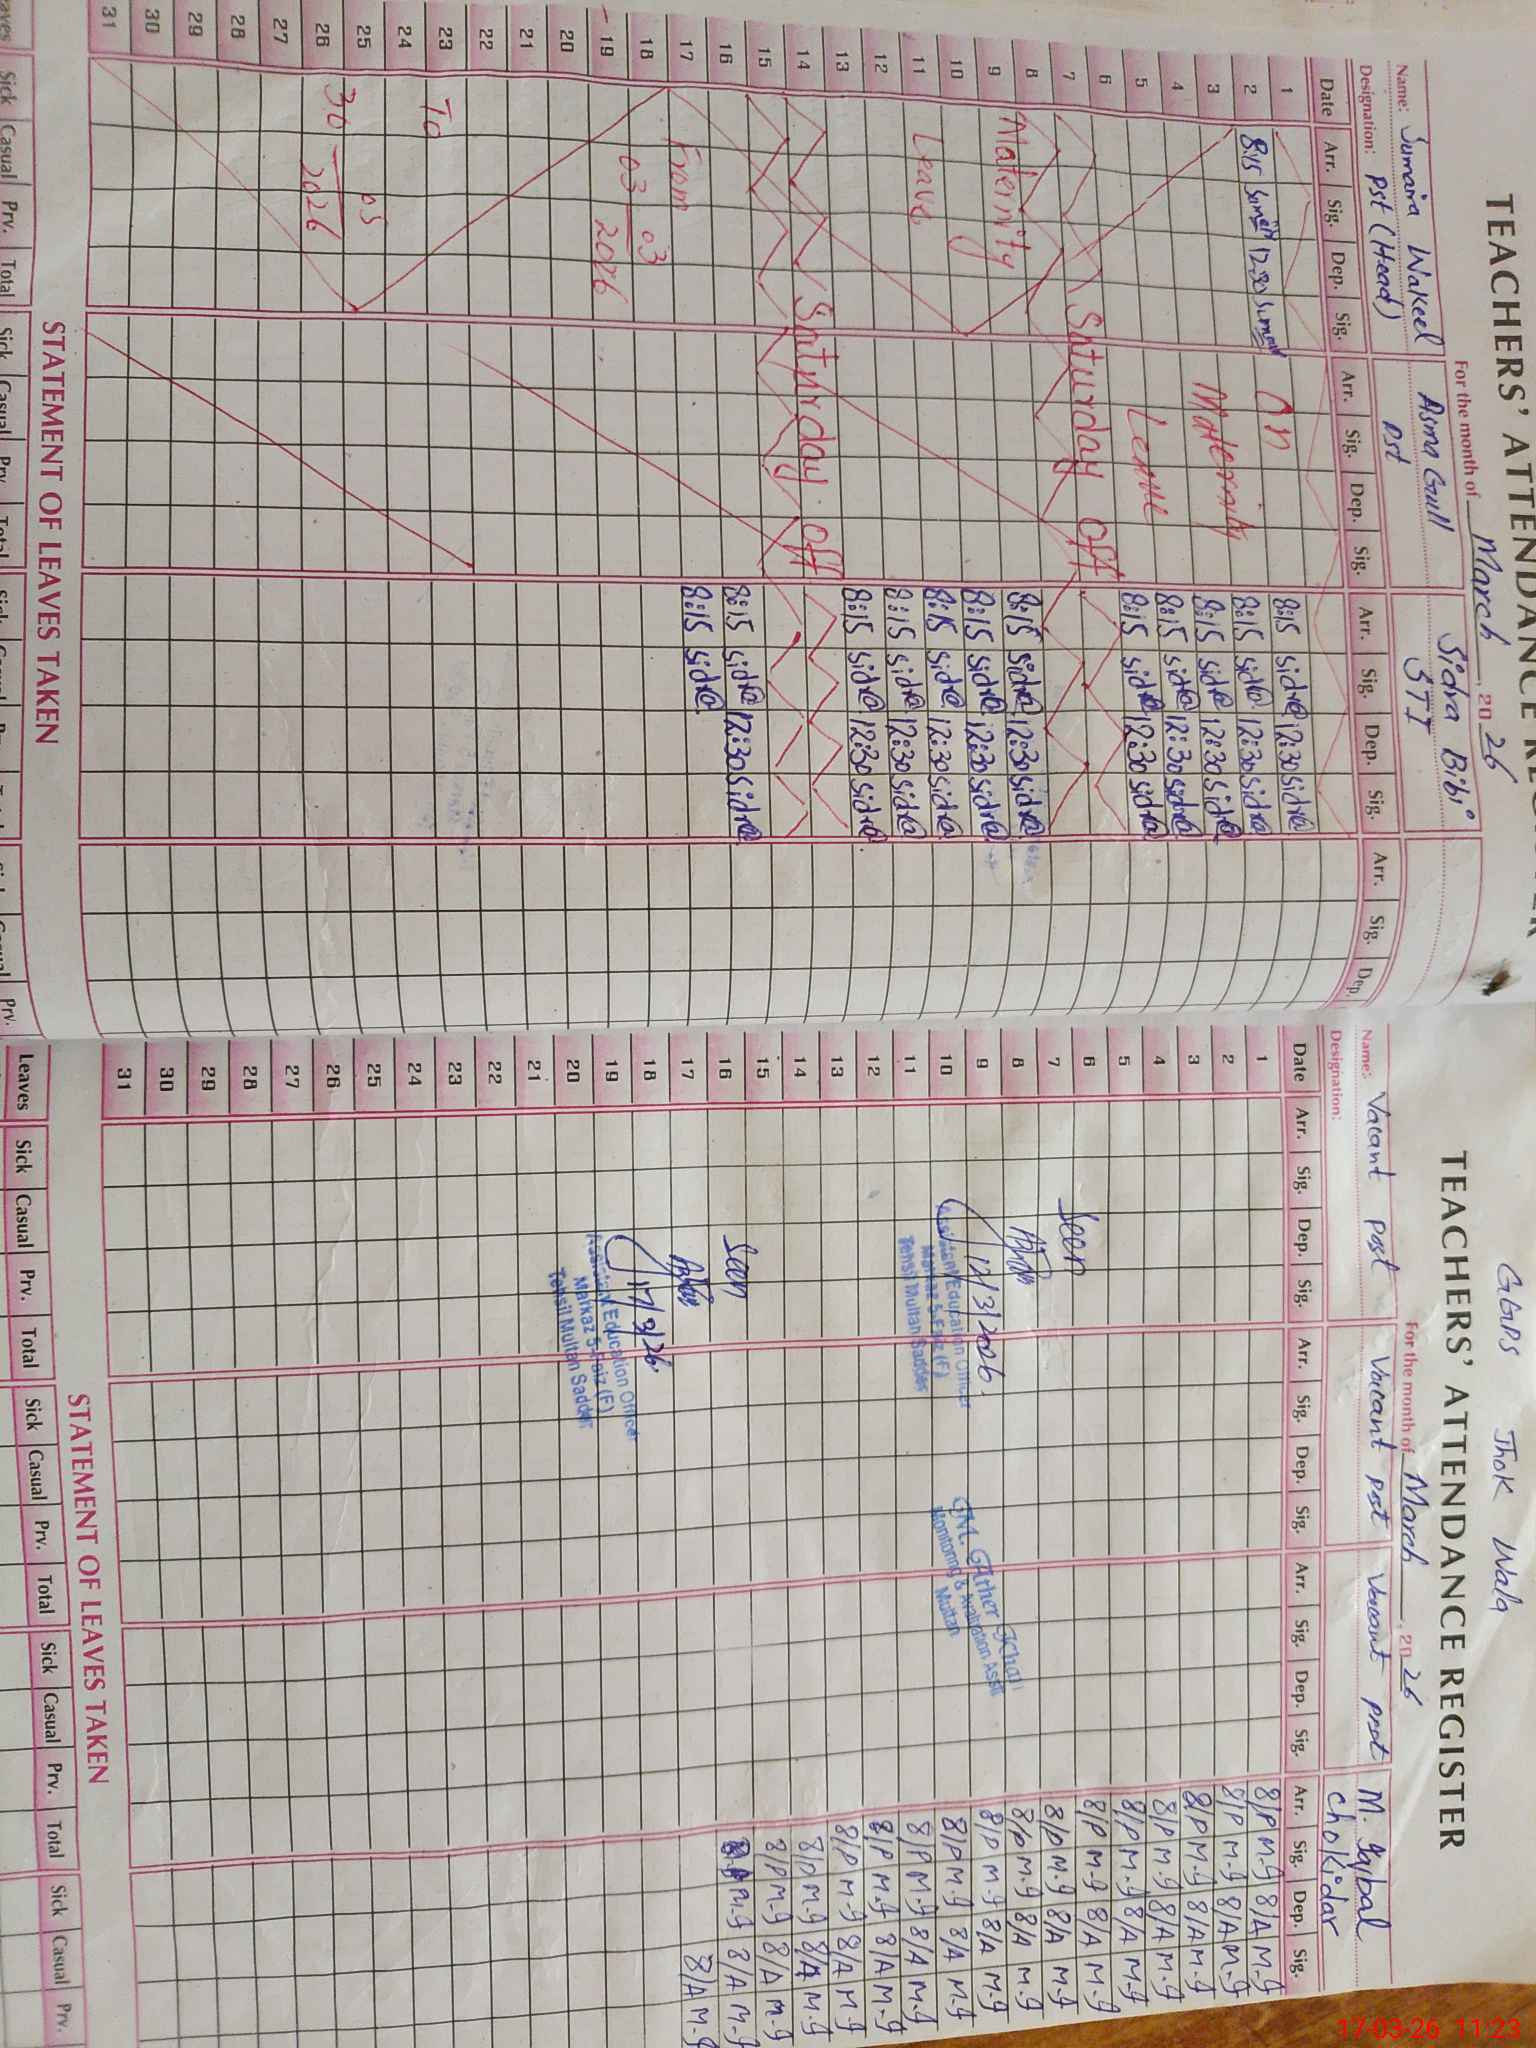 TEACHERS' ATTENDANCE
For the month of March, 2026
Name: Sumaira Wakeel
Asma Gull
Sidra Bibi
Designation: PST (Head)
PST
STI
Date Arr. Sig. Dep. Sig. Arr. Sig. Dep. Sig. Arr. Sig. Dep. Sig. Arr. Sig. Dep.
1 8:15 Sidra 12:30 Sidra
2 8:15 12:30 On 8:15 Sidra 12:30 Sidra
3 Maternity 8:15 Sidra 12:30 Sidra
4 8:15 Sidra 12:30 Sidra
5 Leave 8:15 Sidra 12:30 Sidra
6
7 Saturday Off
8 Maternity 8:15 Sidra 12:30 Sidra
9 8:15 Sidra 12:30 Sidra
10 8:15 Sidra 12:30 Sidra
11 Leave 8:15 Sidra 12:30 Sidra
12 8:15 Sidra 12:30 Sidra
13
14 Saturday Off
15
16 8:15 Sidra 12:30 Sidra
17 From 8:15 Sidra
18 03 03
19 2026
20
21
22
23 To
24
25 05
26 30 2026
27
28
29
30
31
STATEMENT OF LEAVES TAKEN
Sick Casual Prv. Total Sick Casual Prv. Total Sick Casual Prv.
GGPS Thok Wala
TEACHERS' ATTENDANCE REGISTER
For the month of March, 2026
Name: Vacant Post Vacant Post Vacant Post M. Iqbal
Designation: Chokidar
Date Arr. Sig. Dep. Sig. Arr. Sig. Dep. Sig. Arr. Sig. Dep. Sig. Arr. Sig. Dep. Sig.
1 8/P M.I 8/A M.I
2 8/P M.I 8/A M.I
3 8/P M.I 8/A M.I
4 8/P M.I 8/A M.I
5 8/P M.I 8/A M.I
6 8/P M.I 8/A M.I
7 Seen 8/P M.I 8/A M.I
8 8/P M.I 8/A M.I
9 12/3/2026 8/P M.I 8/A M.I
10 8/P M.I 8/A M.I
11 8/P M.I 8/A M.I
12 8/P M.I 8/A M.I
13 8/P M.I 8/A M.I
14 8/P M.I 8/A M.I
15 8/P M.I 8/A M.I
16 Seen M.I 8/A M.I
17 8/A M.I
18 17/3/26
19
20
21
22
23
24
25
26
27
28
29
30
31
Assistant Education Officer
Markaz 5-Faiz (F)
Tehsil Multan Sadder
Monitoring & Evaluation Assit
Multan
Assistant Education Officer
Markaz 5-Faiz (F)
Tehsil Multan Sadder
STATEMENT OF LEAVES TAKEN
Leaves Sick Casual Prv. Total Sick Casual Prv. Total Sick Casual Prv. Total Sick Casual Prv.
17-03-26 11:23